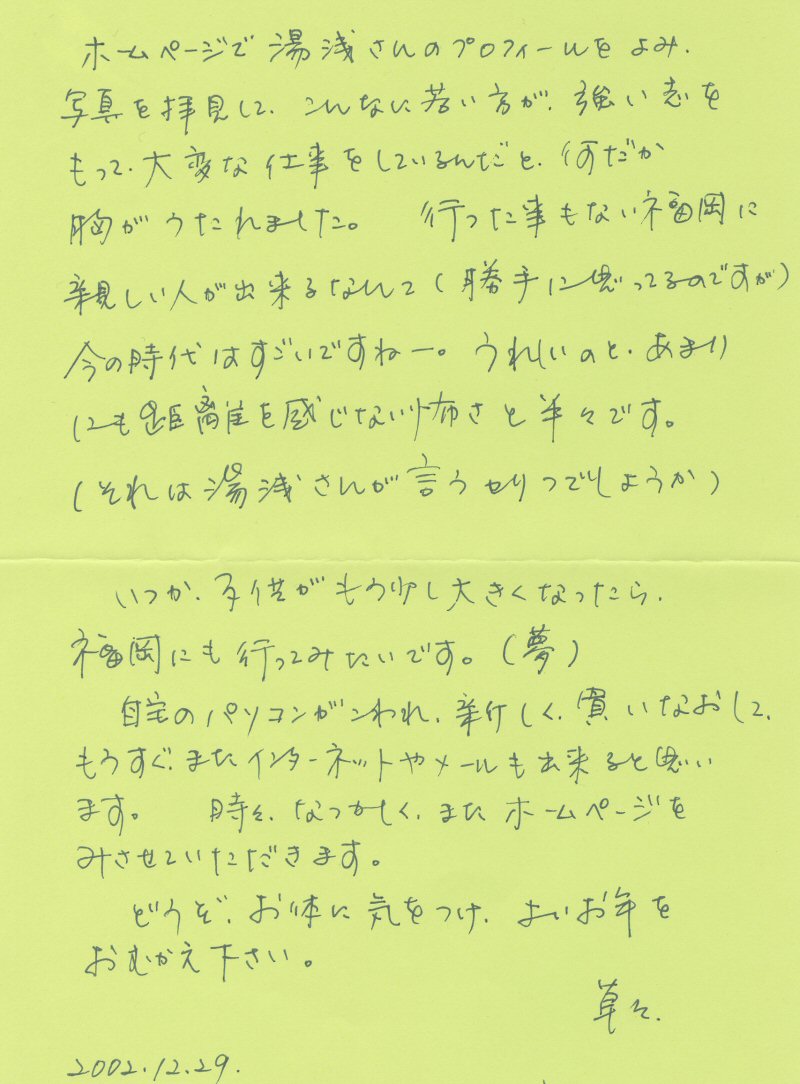 ホームページで湯浅さんのプロフィールをよみ、
写真を拝見して、こんなに若い方が、強い志を
もって、大変な仕事をしているんだと、何だか
胸がうたれました。 行った事もない福岡に
親しい人が出来るなんて(勝手に思ってるのですが)
今の時代はすごいですねー。うれしいのと、あまり
にも距離を感じない怖さと半々です。
(それは湯浅さんが言うセリフでしょうか)
いつか、子供がもう少し大きくなったら、
福岡にも行ってみたいです。(夢)
自宅のパソコンがこわれ、新しく、買いなおして、
もうすぐ、またインターネットやメールも出来ると思い
ます。 時々、なつかしく、またホームページを
みさせていただきます。
どうぞ、お体に気をつけ、よいお年を
おむかえ下さい。
草々.
2002.12.29.